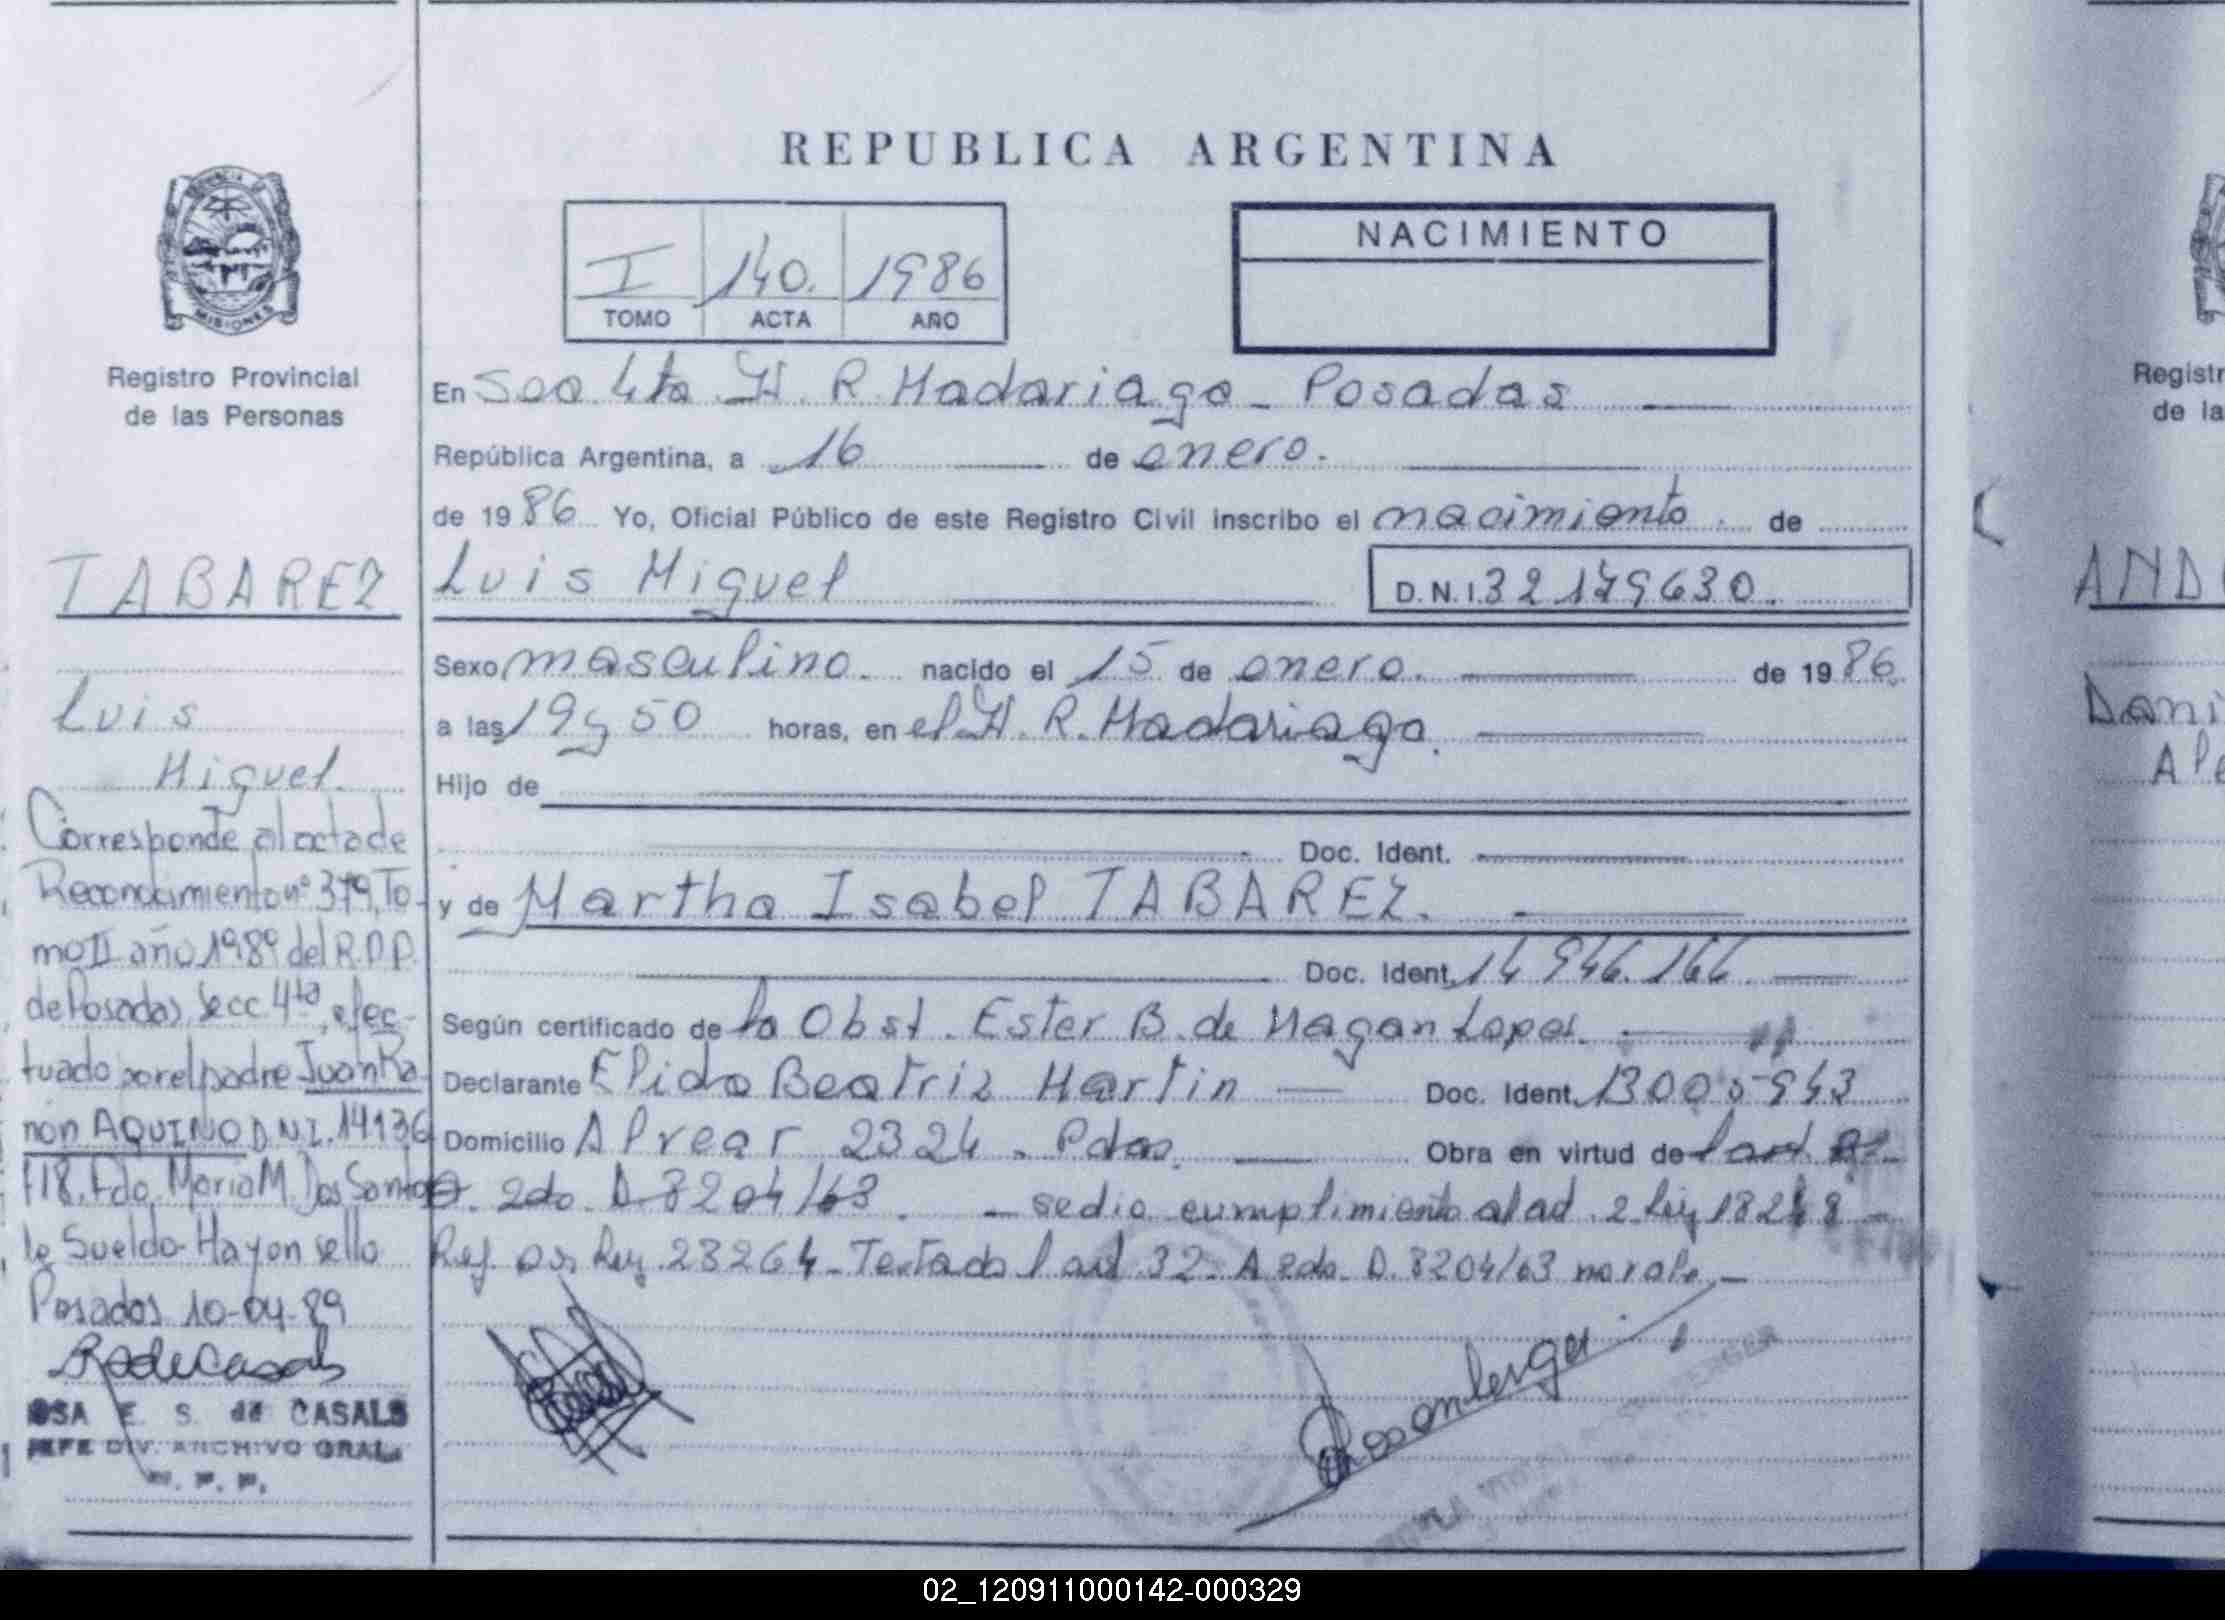 REPUBLICA ARGENTINA
PROVINCIA D
MISIONES
Registro Provincial
de las Personas
I 140. 1986
TOMO ACTA AÑO
NACIMIENTO
En Secc 4ta H. R. Madariaga - Posadas
República Argentina, a 16 de enero.
de 1986 Yo, Oficial Público de este Registro Civil inscribo el nacimiento de
Luis Miguel D.N.I. 32179630.
Sexo masculino. nacido el 15 de enero. de 1986.
a las 19 y 50 horas, en el H. R. Madariaga.
Hijo de
Doc. Ident.
y de Martha Isabel TABAREZ.
Doc. Ident. 14.946.164
Según certificado de la Obst. Ester B. de Magan Lopez.
Declarante Elida Beatriz Martin Doc. Ident. 13005943
Domicilio Alvear 2324. Pdas. Obra en virtud de l art.
2do. D. 8204/63. - se dio cumplimiento al art. 2 Ley 18248 -
Ref. por Ley 23264 - Testado l art. 32. A 2do. D. 8204/63 no vale. -
Rosemberger
TABAREZ
Luis
Miguel.
Corresponde al acta de
Reconocimiento nº 379, To-
mo II año 1989 del R.P.P.
de Posadas Secc 4ta, efec-
tuado por el padre Juan Ra-
món AQUINO D.N.I. 14136
718. Fdo. Maria M. Dos Santos
de Sueldo - Hay on sello
Posadas 10-04-89
RdeCasals
OSA E. S. de CASALS
JEFE DIV. ARCHIVO GRAL.
R. P. P.
Registr
de la
AND
Dani
Ale
02_120911000142-000329